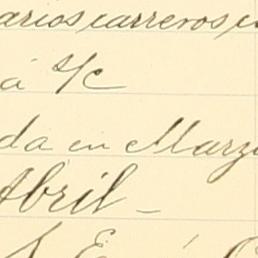 arios carreros
á S/C
da en Marz
Abril –